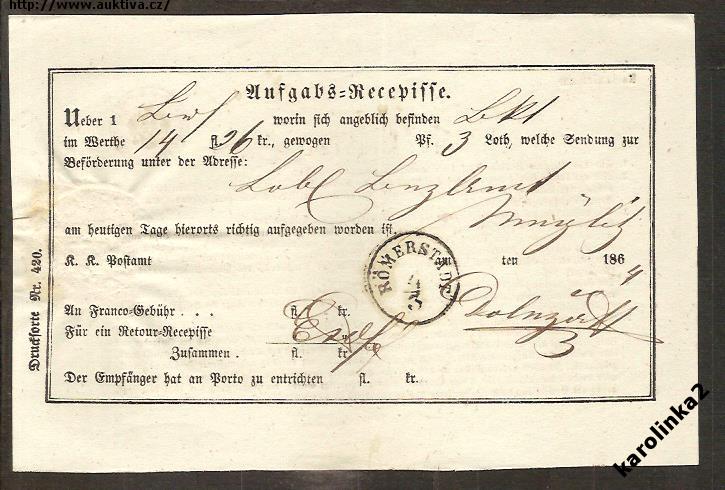 http://www.auktiva.cz/
Aufgabs=Recepisse.
Ueber 1 worin sich angeblich befinden
im Werthe 14 fl. 26 kr., gewogen Pf. 3 Loth, welche Sendung zur
Beförderung unter der Adresse:
Löbl
Müglitz
am heutigen Tage hierorts richtig aufgegeben worden ist.
K. K. Postamt am ten 1864
RÖMERSTADT
4/3
An Franco=Gebühr . . . fl. kr.
Für ein Retour=Recepisse
Zusammen . fl. kr.
Der Empfänger hat an Porto zu entrichten fl. kr.
Drucksorte Nr. 420.
karolinka2